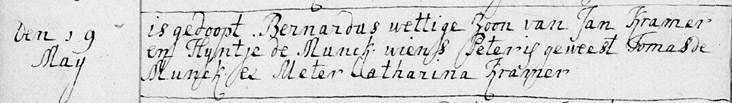 Den 19 May
is gedoopt Bernardus wettige Zoon van Jan Kramer
en Hyntje de Munck wiens Peter is geweest Tomas de
Munck de Meter Catharina Kramer